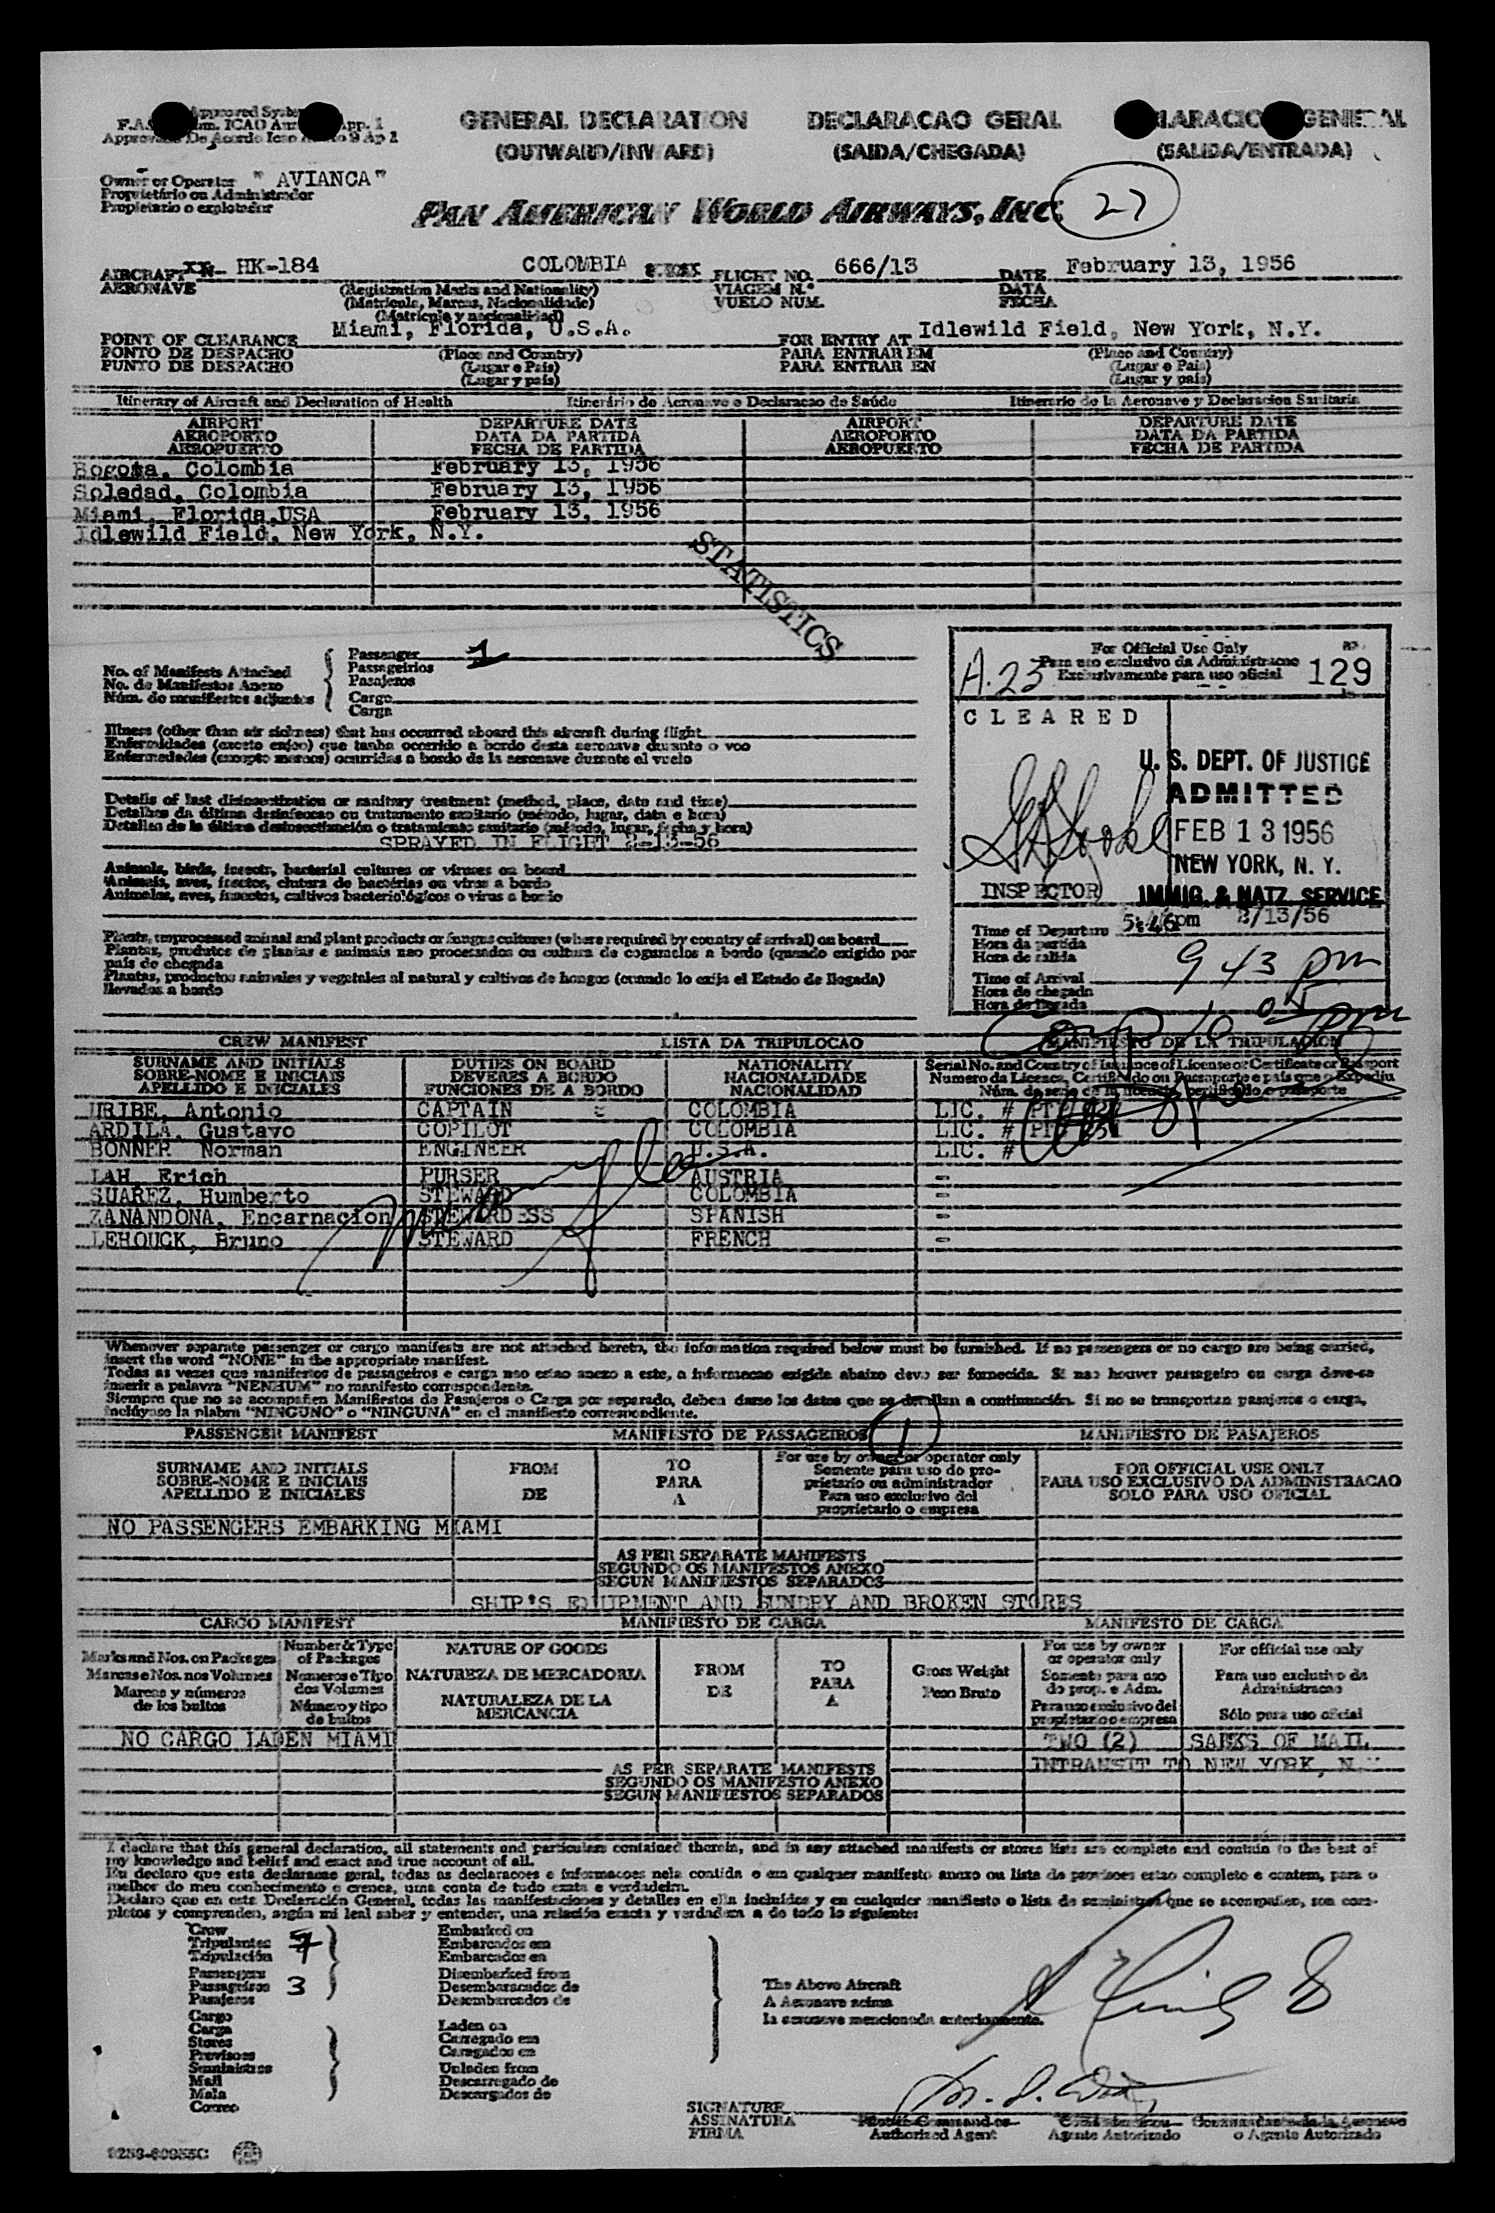 GENERAL DECLARATION DECLARACAO GERAL
(OUTWARD/INWARD) (SAIDA/CHEGADA) (SALIDA/ENTRADA)
Owner or Operator " AVIANCA"
Proprietário ou Administrador
Propietario o explotador
PAN AMERICAN WORLD AIRWAYS, INC. 27
AIRCRAFT HK-184 COLOMBIA FLIGHT NO. 666/13 DATE February 13, 1956
AERONAVE (Registration Marks and Nationality) VIAGEM N.º DATA
(Matricula, Marcas, Nacionalidade) VUELO NUM. FECHA
(Matricula y nacionalidad)
POINT OF CLEARANCE Miami, Florida, U.S.A. FOR ENTRY AT Idlewild Field, New York, N.Y.
PONTO DE DESPACHO (Place and Country) PARA ENTRAR EM (Place and Country)
PUNTO DE DESPACHO (Lugar e País) PARA ENTRAR EN (Lugar e País)
(Lugar y país) (Lugar y país)
Itinerary of Aircraft and Declaration of Health Itinerário de Aeronave e Declaracao de Saúde Itinerario de la Aeronave y Declaracion Sanitaria
AIRPORT DEPARTURE DATE AIRPORT DEPARTURE DATE
AEROPORTO DATA DA PARTIDA AEROPORTO DATA DA PARTIDA
AEROPUERTO FECHA DE PARTIDA AEROPUERTO FECHA DE PARTIDA
Bogota, Colombia February 13, 1956
Soledad, Colombia February 13, 1956
Miami, Florida,USA February 13, 1956
Idlewild Field, New York, N.Y.
STATISTICS
No. of Manifests Attached Passenger 1
No. de Manifestos Anexo Passageirios
Núm. de manifiestos adjuntos Pasajeros
Cargo
Carga
For Official Use Only
Para uso exclusivo da Administracao
Exclusivamente para uso oficial
A.23 129
Illness (other than air sickness) that has occurred aboard this aircraft during flight
Enfermidades (exceto enjoo) que tenha ocorrido a bordo desta aeronave durante o voo
Enfermedades (excepto mareos) ocurridas a bordo de la aeronave durante el vuelo
CLEARED
U. S. DEPT. OF JUSTICE
ADMITTED
FEB 13 1956
NEW YORK, N. Y.
IMMIG. & NATZ. SERVICE
INSPECTOR
Details of last disinsectization or sanitary treatment (method, place, date and time)
Detalhes da última desinfeccao ou tratamento sanitario (método, lugar, data e hora)
Detalles de la última desinsectización o tratamiento sanitario (método, lugar, fecha y hora)
SPRAYED IN FLIGHT 2-13-56
Animals, birds, insects, bacterial cultures or viruses on board
Animais, aves, insetos, clutura de bactérias ou virus a bordo
Animales, aves, insectos, cultivos bacteriológicos o virus a bordo
Plants, unprocessed animal and plant products or fungus cultures (where required by country of arrival) on board
Plantas, produtos de plantas e animais nao procesados ou cultura de cogumelos a bordo (quando exigido por
país de chegada
Plantas, productos animales y vegetales al natural y cultivos de hongos (cuando lo exija el Estado de llegada)
llevados a bordo
Time of Departure 5:46pm 2/13/56
Hora da partida
Hora de salida
Time of Arrival 9 43 pm
Hora de chegada
Hora de llegada
CREW MANIFEST LISTA DA TRIPULOCAO MANIFIESTO DE LA TRIPULACION
SURNAME AND INITIALS DUTIES ON BOARD NATIONALITY Serial No. and Country of Issuance of License or Certificate or Passport
SOBRE-NOME E INICIAIS DEVERES A BORDO NACIONALIDADE
APELLIDO E INICIALES FUNCIONES DE A BORDO NACIONALIDAD
URIBE, Antonio CAPTAIN COLOMBIA LIC. #
ARDILA, Gustavo COPILOT COLOMBIA LIC. #
BONNER Norman ENGINEER U.S.A. LIC. #
LAH, Erich PURSER AUSTRIA -
SUAREZ, Humberto STEWARD COLOMBIA -
ZANANDONA, Encarnacion STEWARDESS SPANISH -
LEHOUCK, Bruno STEWARD FRENCH -
Whenever separate passenger or cargo manifests are not attached hereto, the information required below must be furnished. If no passengers or no cargo are being carried,
insert the word "NONE" in the appropriate manifest.
Todas as vezes que manifestos de passageiros e carga nao estao anexo a este, a informacao exigida abaixo deve ser fornecida. Si nao houver passageiro ou carga deve-se
inserir a palavra "NENHUM" no manifesto correspondente.
Siempre que no se acompañen Manifiestos de Pasajeros o Carga por separado, deben darse los datos que se detallan a continuación. Si no se transportan pasajeros o carga,
inclúyase la plabra "NINGUNO" o "NINGUNA" en el manifiesto correspondiente.
PASSENGER MANIFEST MANIFESTO DE PASSAGEIROS 1 MANIFIESTO DE PASAJEROS
SURNAME AND INITIALS FROM TO For use by owner or operator only FOR OFFICIAL USE ONLY
SOBRE-NOME E INICIAIS DE PARA Somente para uso do pro- PARA USO EXCLUSIVO DA ADMINISTRACAO
APELLIDO E INICIALES A prietario ou administrador SOLO PARA USO OFICIAL
Para uso exclusivo del
proprietario o empresa
NO PASSENGERS EMBARKING MIAMI
AS PER SEPARATE MANIFESTS
SEGUNDO OS MANIFESTOS ANEXO
SEGUN MANIFIESTOS SEPARADOS
SHIP'S EQUIPMENT AND SUNDRY AND BROKEN STORES
CARGO MANIFEST MANIFIESTO DE CARGA MANIFESTO DE CARGA
Marks and Nos. on Packages Number & Type of Packages NATURE OF GOODS FROM TO Gross Weight For use by owner or operator only For official use only
Marcas e Nos. nos Volumes Numeros e Tipo dos Volumes NATUREZA DE MERCADORIA DE PARA Peso Bruto Somente para uso do prop. e Adm. Para uso exclusivo da Administracao
Marcas y números de los bultos Número y tipo de bultos NATURALEZA DE LA MERCANCIA A Para uso exclusivo del propietario o empresa Sólo para uso oficial
NO CARGO LADEN MIAMI TWO (2) SACKS OF MAIL
INTRANSIT TO NEW YORK, N.Y.
AS PER SEPARATE MANIFESTS
SEGUNDO OS MANIFESTO ANEXO
SEGUN MANIFIESTOS SEPARADOS
I declare that this general declaration, all statements and particulars contained therein, and in any attached manifests or stores lists are complete and contain to the best of
my knowledge and belief and exact and true account of all.
Eu declaro que esta declaracao geral, todas as declaracoes e informacoes nela contida o em qualquer manifesto anexo ou lista de provisoes estao completo e contem, para o
melhor do meu conhecimento e crenca, uma conta de tudo exata e verdadeira.
Declaro que en esta Declaración General, todas las manifestaciones y detalles en ella incluidos y en cualquier manifiesto o lista de suministros que se acompañen, son com-
pletos y comprenden, según mi leal saber y entender, una relación exacta y verdadera a de todo lo siguiente:
Crew Embarked on
Tripulantes 7 Embarcados em
Tripulación Embarcados en
Passengers Disembarked from
Passageiros 3 Desembaracados de The Above Aircraft
Pasajeros Desembarcados de A Aeronave acima
Cargo La aeronave mencionada anteriormente.
Carga Laden on
Stores Carregado em
Provisoes Cargados en
Suministros Unladen from
Mail Descarregado de
Mala Descargados de
Correo
SIGNATURE
ASSINATURA Authorized Agent Agente Autorizado o Agente Autorizado
FIRMA